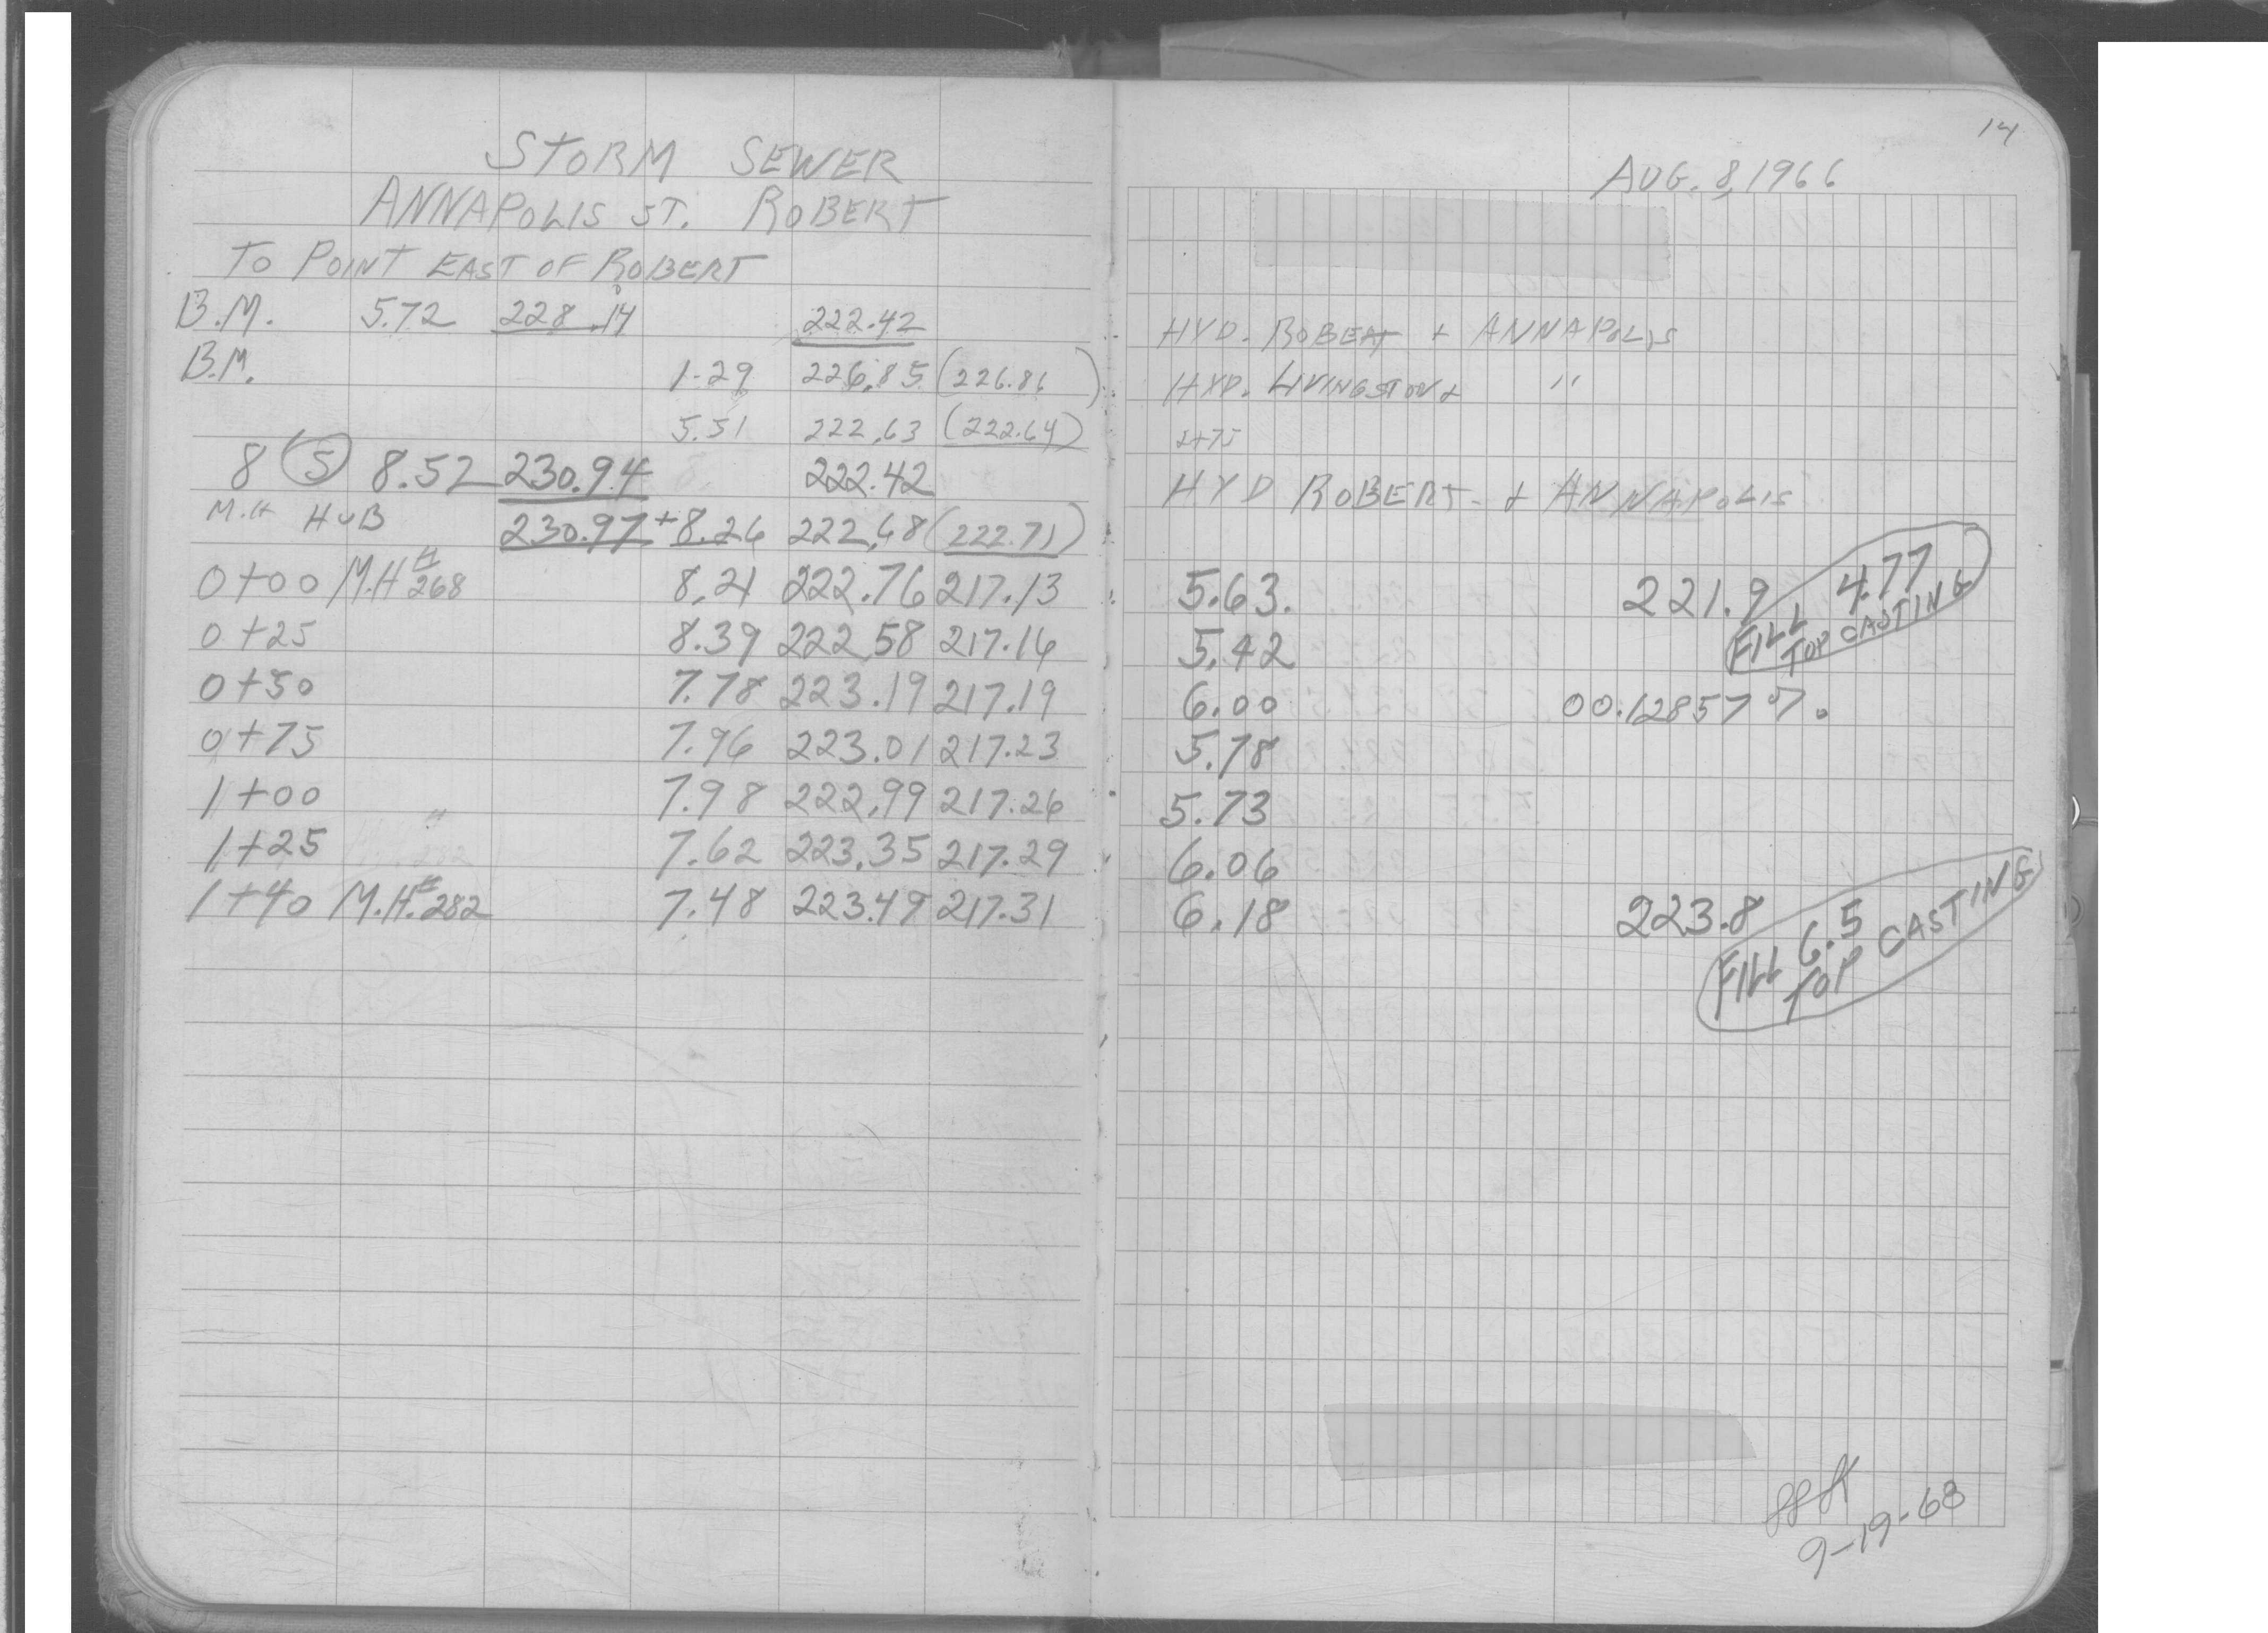 STORM SEWER
ANNAPOLIS ST. ROBERT
TO POINT EAST OF ROBERT
B.M. 5.72 228.14 222.42
B.M. 1.29 226.85 (226.86)
5.51 222.63 (222.64)
8 (5) 8.52 230.94 222.42
M.H HUB 230.97 + 8.26 222.68 (222.71)
0+00 M.H # 268 8.21 222.76 217.13
0+25 8.39 222.58 217.16
0+50 7.78 223.19 217.19
0+75 7.96 223.01 217.23
1+00 7.98 222.99 217.26
1+25 7.62 223.35 217.29
1+40 M.H. # 282 7.48 223.49 217.31
14
AUG. 8, 1966
HYD. ROBERT + ANNAPOLIS
HYD. LIVINGSTON + "
2+75
HYD ROBERT + ANNAPOLIS
5.63. 221.9 FILL 4.77
TOP CASTING
5.42
6.00 00.12857 %
5.78
5.73
6.06
6.18 223.8 FILL 6.5
TOP CASTING
9-19-68